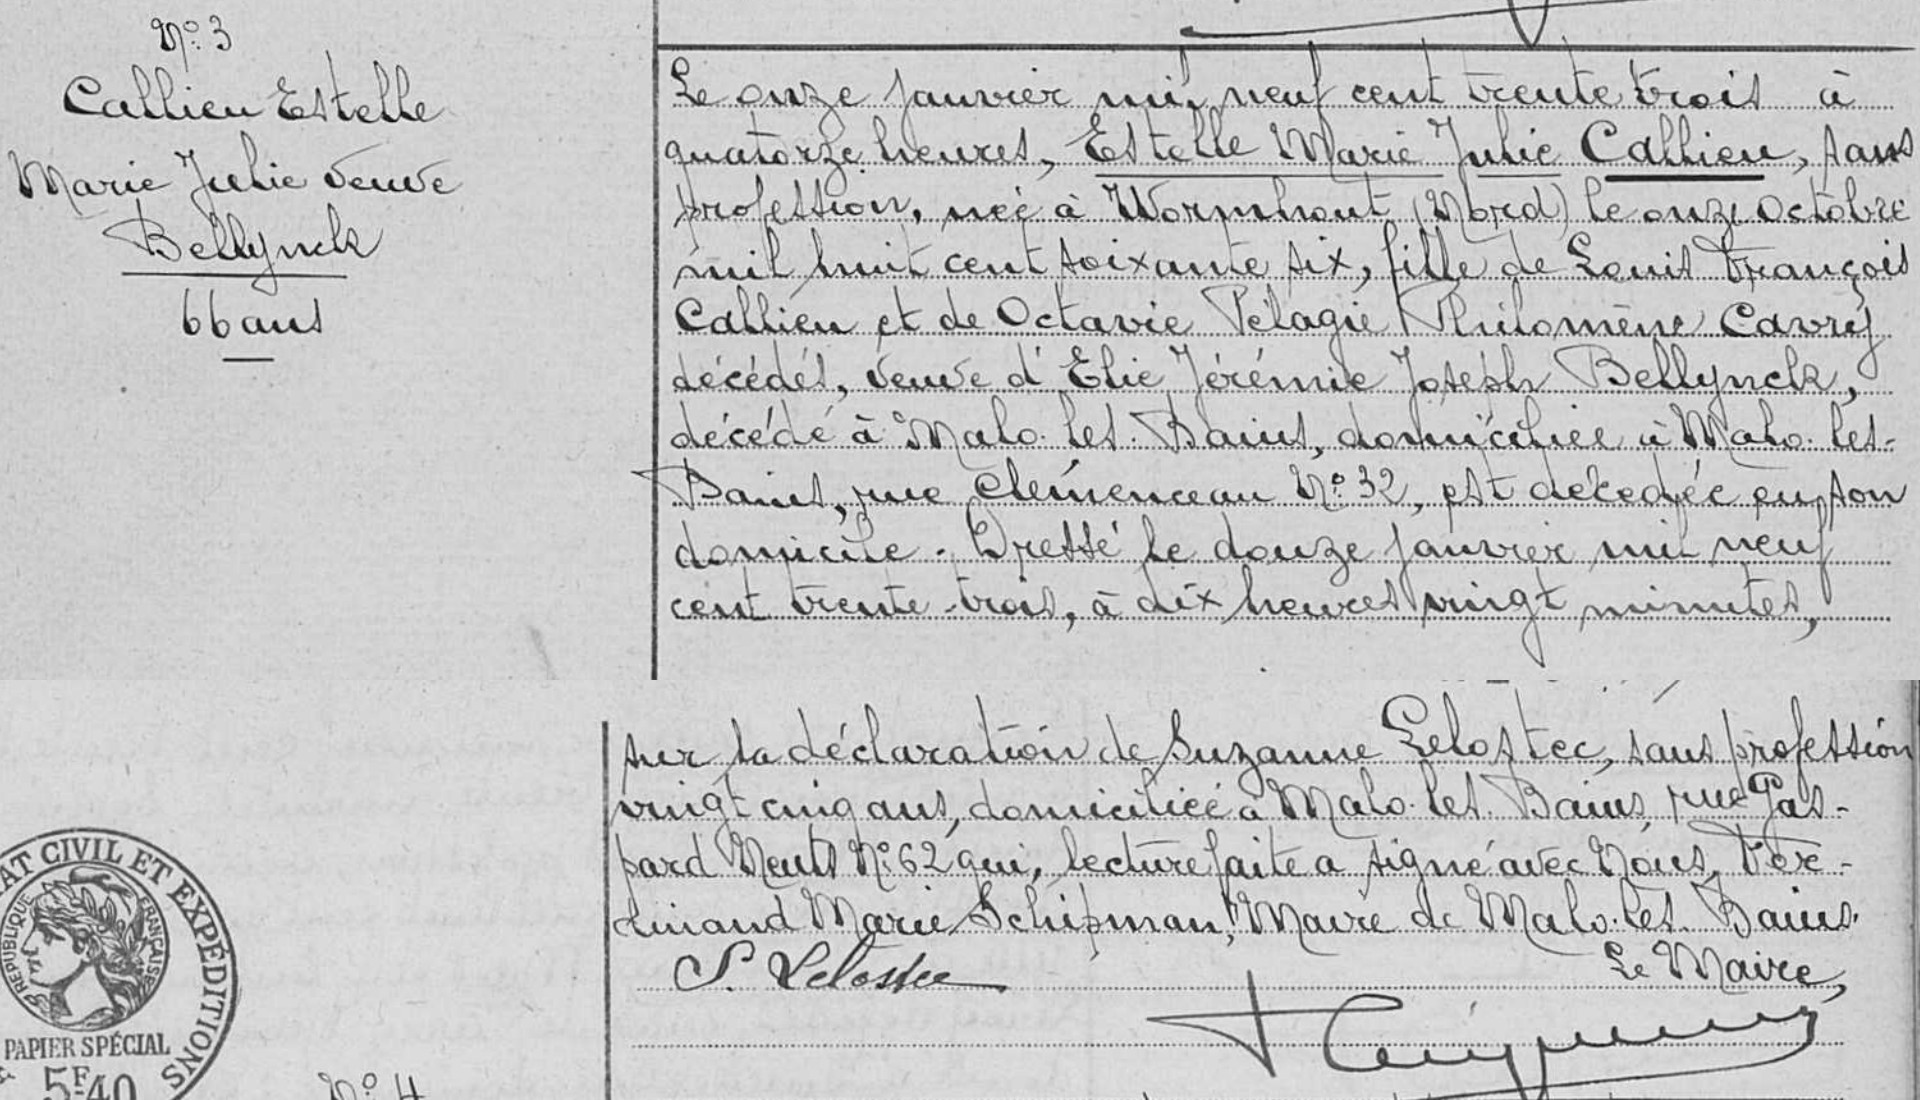 N° 3
Callieu Estelle
Marie Julie veuve
Bellynck
66 ans
Le onze janvier mil neuf cent trente trois à
quatorze heures, Estelle Marie Julie Callieu, sans
profession, née à Wormhout (Nord) le onze octobre
mil huit cent soixante six, fille de Louis François
Callieu et de Octavie Pélagie Philomène Cavrÿ
décédés, veuve d'Elie Jérémie Joseph Bellynck,
décédé à Malo-les-Bains, domiciliée à Malo-les-
Bains, rue Clémenceau N° 32, est décédée en son
domicile. Dressé le douze janvier mil neuf
cent trente-trois, à dix heures vingt minutes,
sur la déclaration de Suzanne Lelostec, sans profession
vingt cinq ans, domiciliée à Malo-les-Bains, rue Gas-
pard Neuts N° 62 qui, lecture faite a signé avec Nous, Fer-
dinand Marie Schipman, Maire de Malo-les-Bains.
S. Lelostec
Le Maire,
ÉTAT CIVIL ET EXPÉDITIONS
RÉPUBLIQUE FRANÇAISE
PAPIER SPÉCIAL
5F40
N° 4